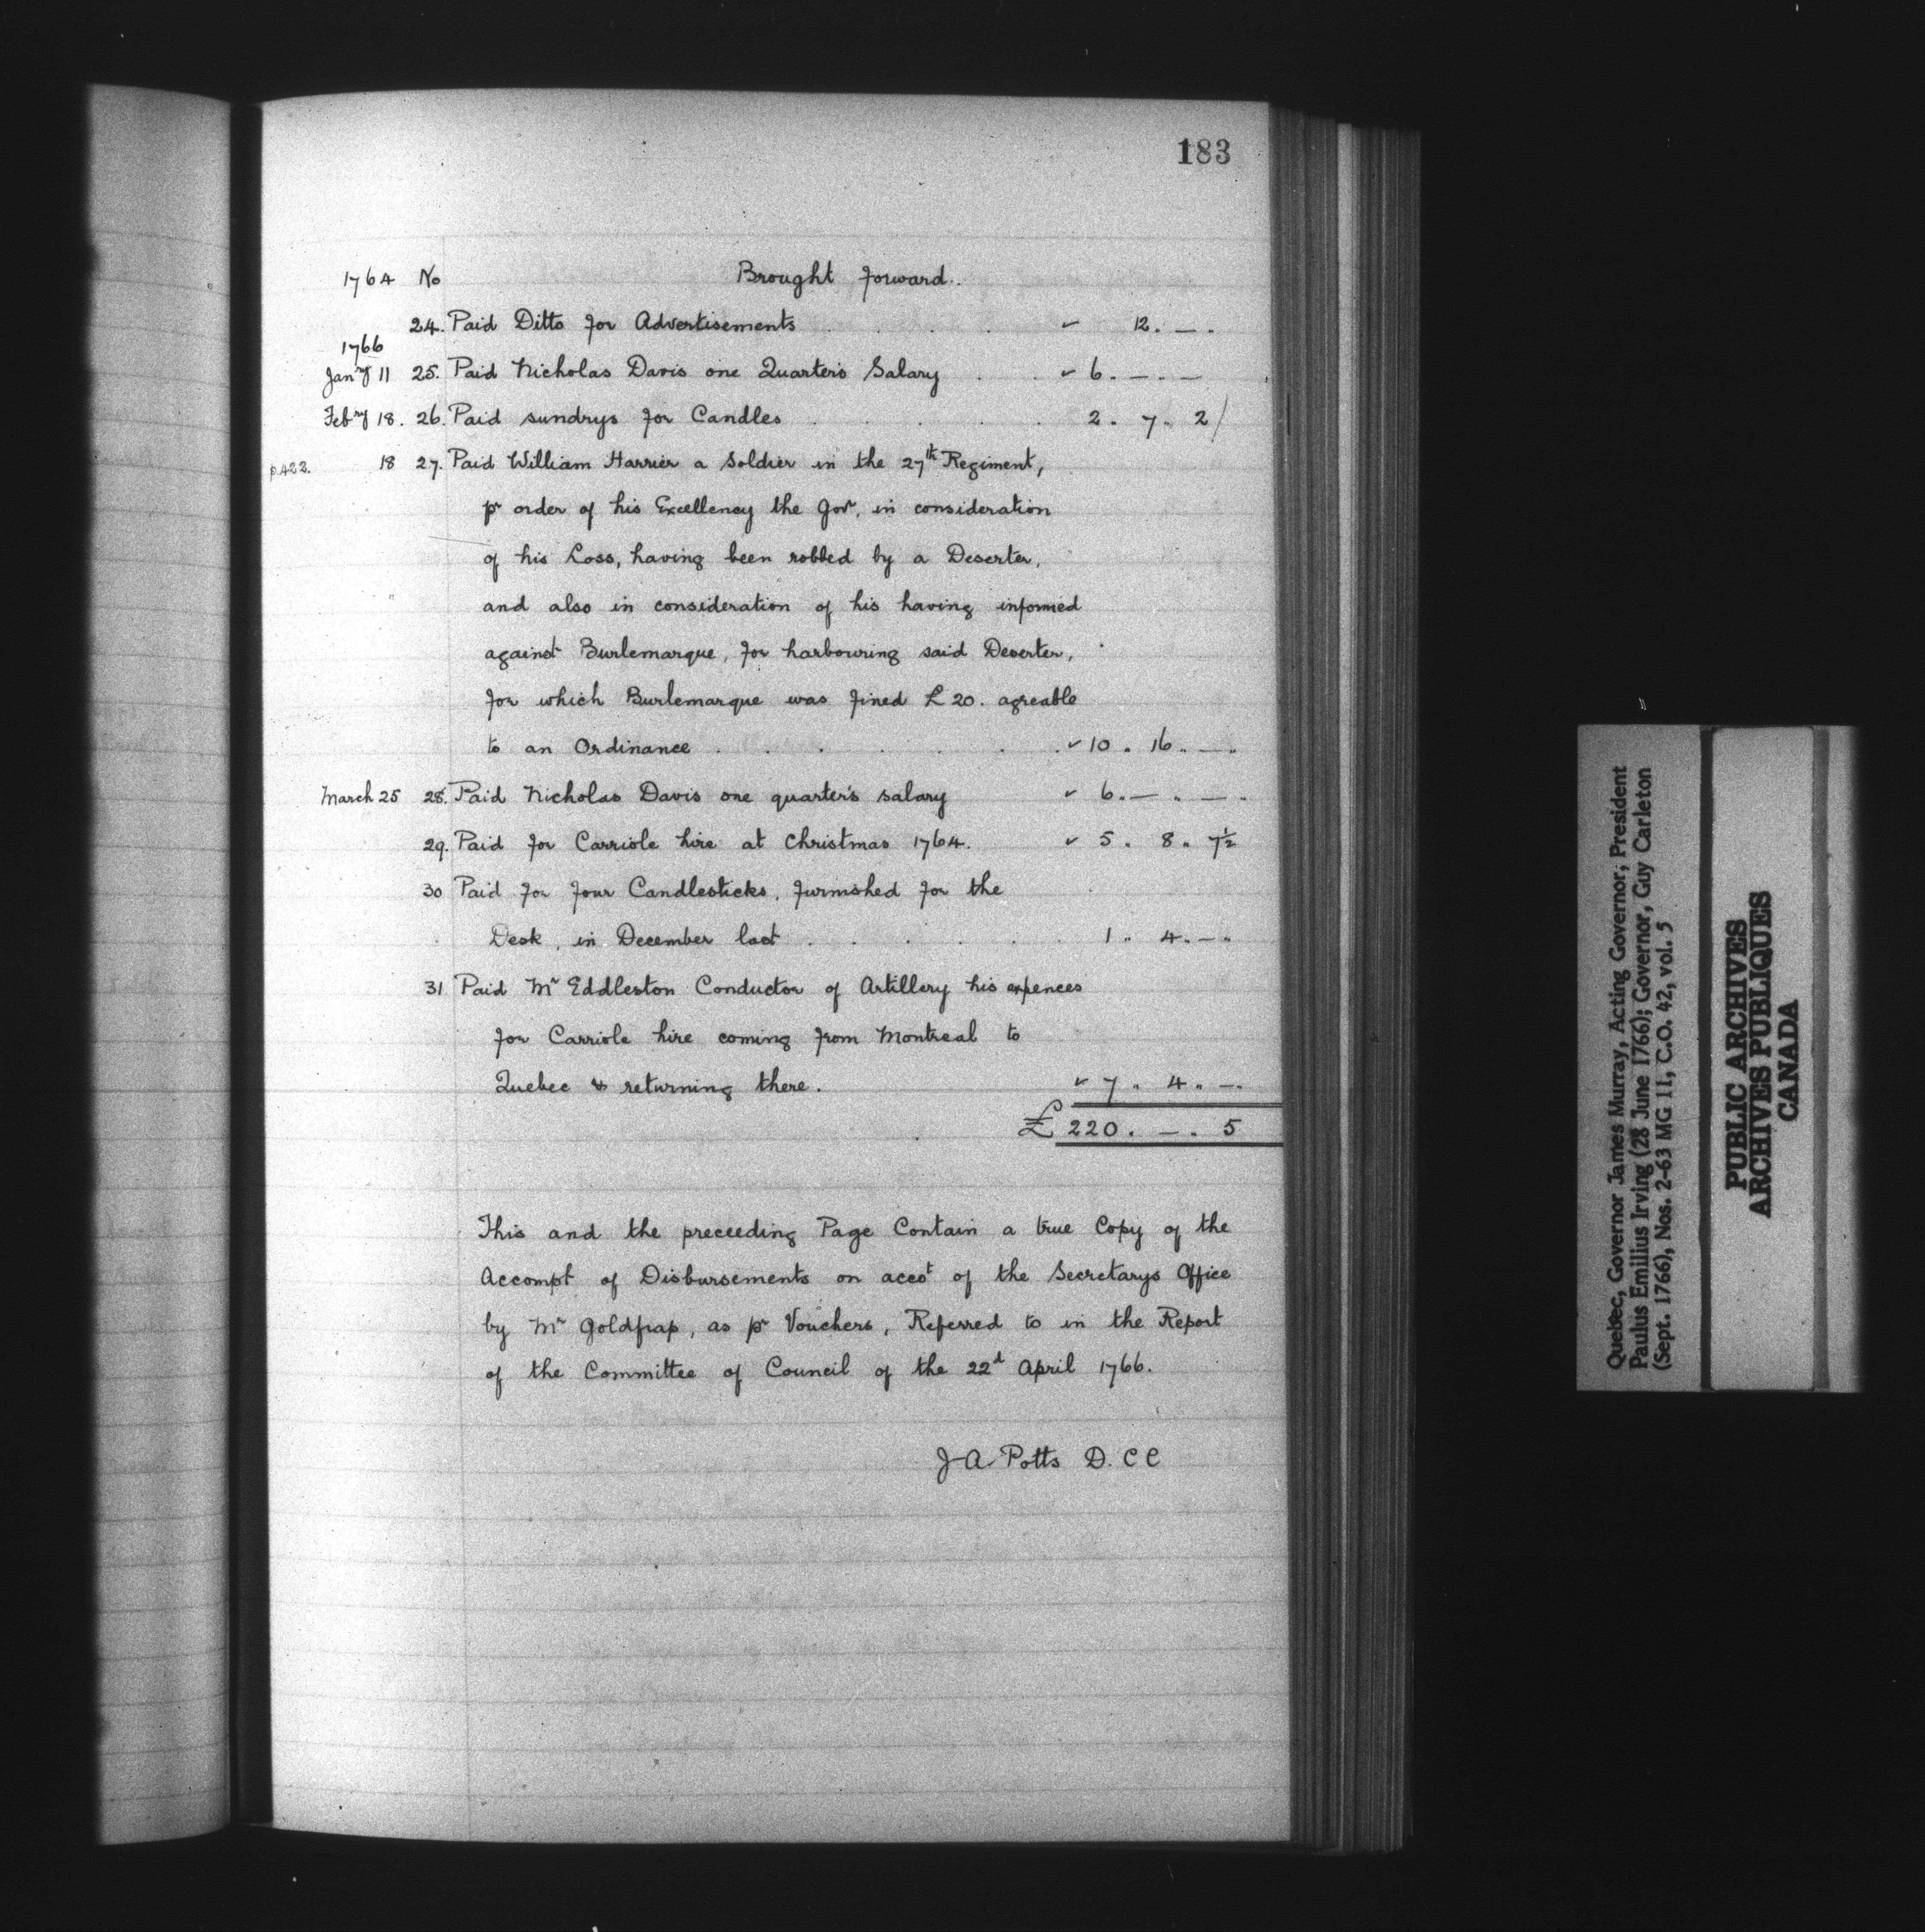 183
1764 No Brought forward..
24. Paid Ditto for Advertisements . . . . ✓ 12. — .
1766
Janry 11 25. Paid Nicholas Davis one Quarter's Salary . . ✓ 6. — . —
Febry 18. 26. Paid sundrys for Candles . . . . . 2. 7. 2/
p.422. 18 27. Paid William Harrier a Soldier in the 27th Regiment,
pr order of his Excellency the Govr, in consideration
of his Loss, having been robbed by a Deserter,
and also in consideration of his having informed
against Burlemarque, for harbouring said Deserter,
for which Burlemarque was fined £20. agreable
to an Ordinance . . . . . . ✓ 10. 16. — .
March 25 28. Paid Nicholas Davis one quarter's salary ✓ 6. — . — .
29. Paid for Carriole hire at Christmas 1764. ✓ 5. 8. 7½
30 Paid for four Candlesticks, furnished for the
Desk, in December last . . . . . 1. 4. — .
31 Paid Mr Eddleston Conductor of Artillery his expences
for Carriole hire coming from Montreal to
Quebec & returning there. ✓ 7. 4. — .
£ 220. — . 5
This and the preceeding Page Contain a true Copy of the
Accompt of Disbursements on accot of the Secretarys Office
by Mr Goldfrap, as pr Vouchers, Referred to in the Report
of the Committee of Council of the 22d April 1766.
J A Potts D. C C
Quebec, Governor James Murray, Acting Governor; President
Paulus Emilius Irving (28 June 1766); Governor, Guy Carleton
(Sept. 1766), Nos. 2-63 MG 11, C.O. 42, vol. 5
PUBLIC ARCHIVES
ARCHIVES PUBLIQUES
CANADA